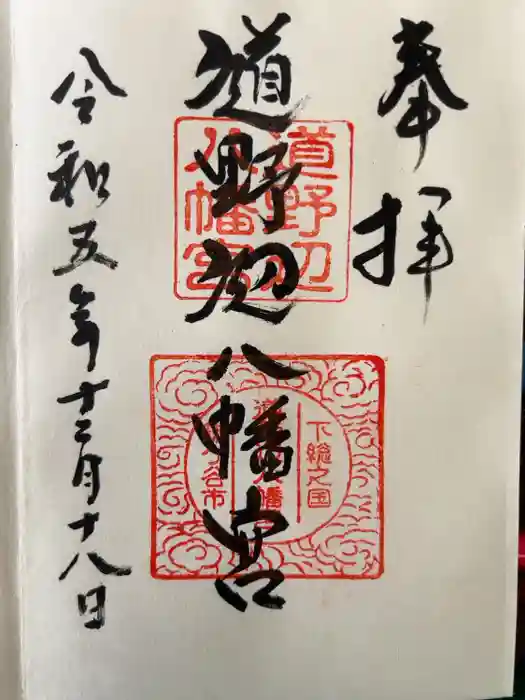 奉拝
道野辺八幡宮
道野辺
八幡宮
下総之国
道野辺八幡宮
谷市
令和五年十二月十八日